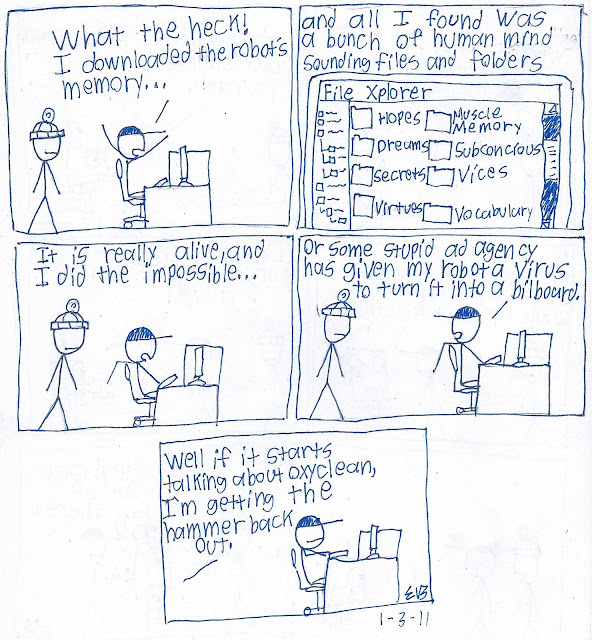 What the heck!
I downloaded the robot's
memory...
and all I found was
a bunch of human mind
sounding files and folders
File Xplorer
Hopes
Muscle
Memory
Dreams
Subconcious
Secrets
Vices
Virtues
Vocabulary
It is really alive, and
I did the impossible...
Or some stupid ad agency
has given my robot a virus
to turn it into a bilboard.
Well if it starts
talking about oxyclean,
I'm getting the
hammer back
out.
EB
1-3-11